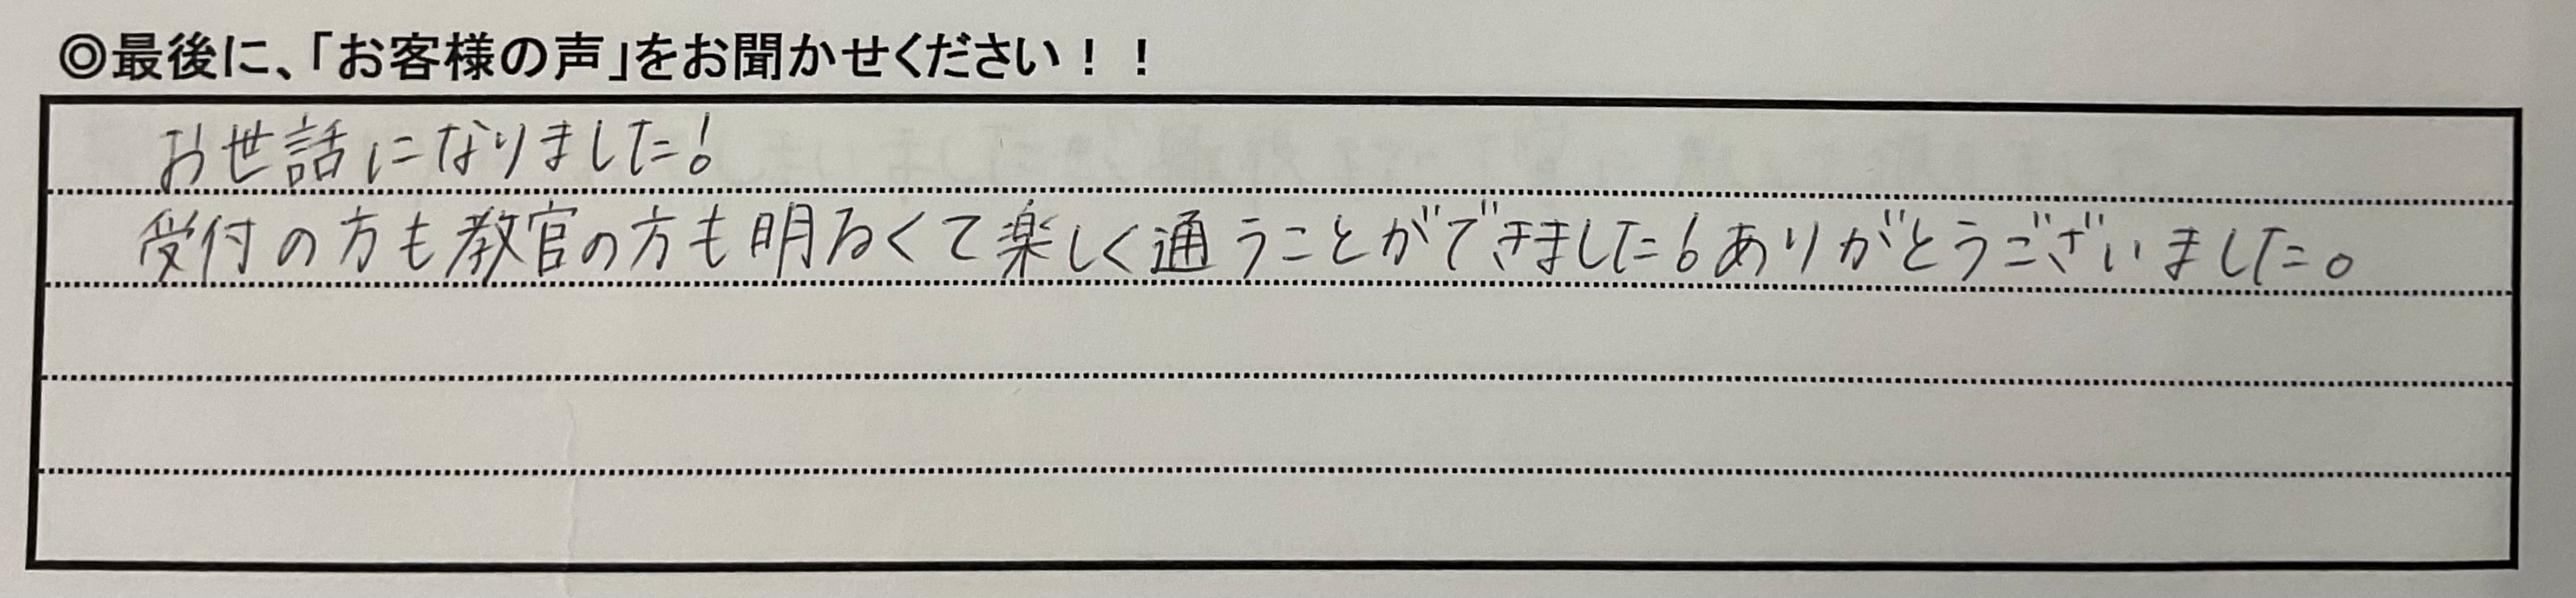 ◎最後に、「お客様の声」をお聞かせください！！
お世話になりました!
受付の方も教官の方も明るくて楽しく通うことができました!ありがとうございました。